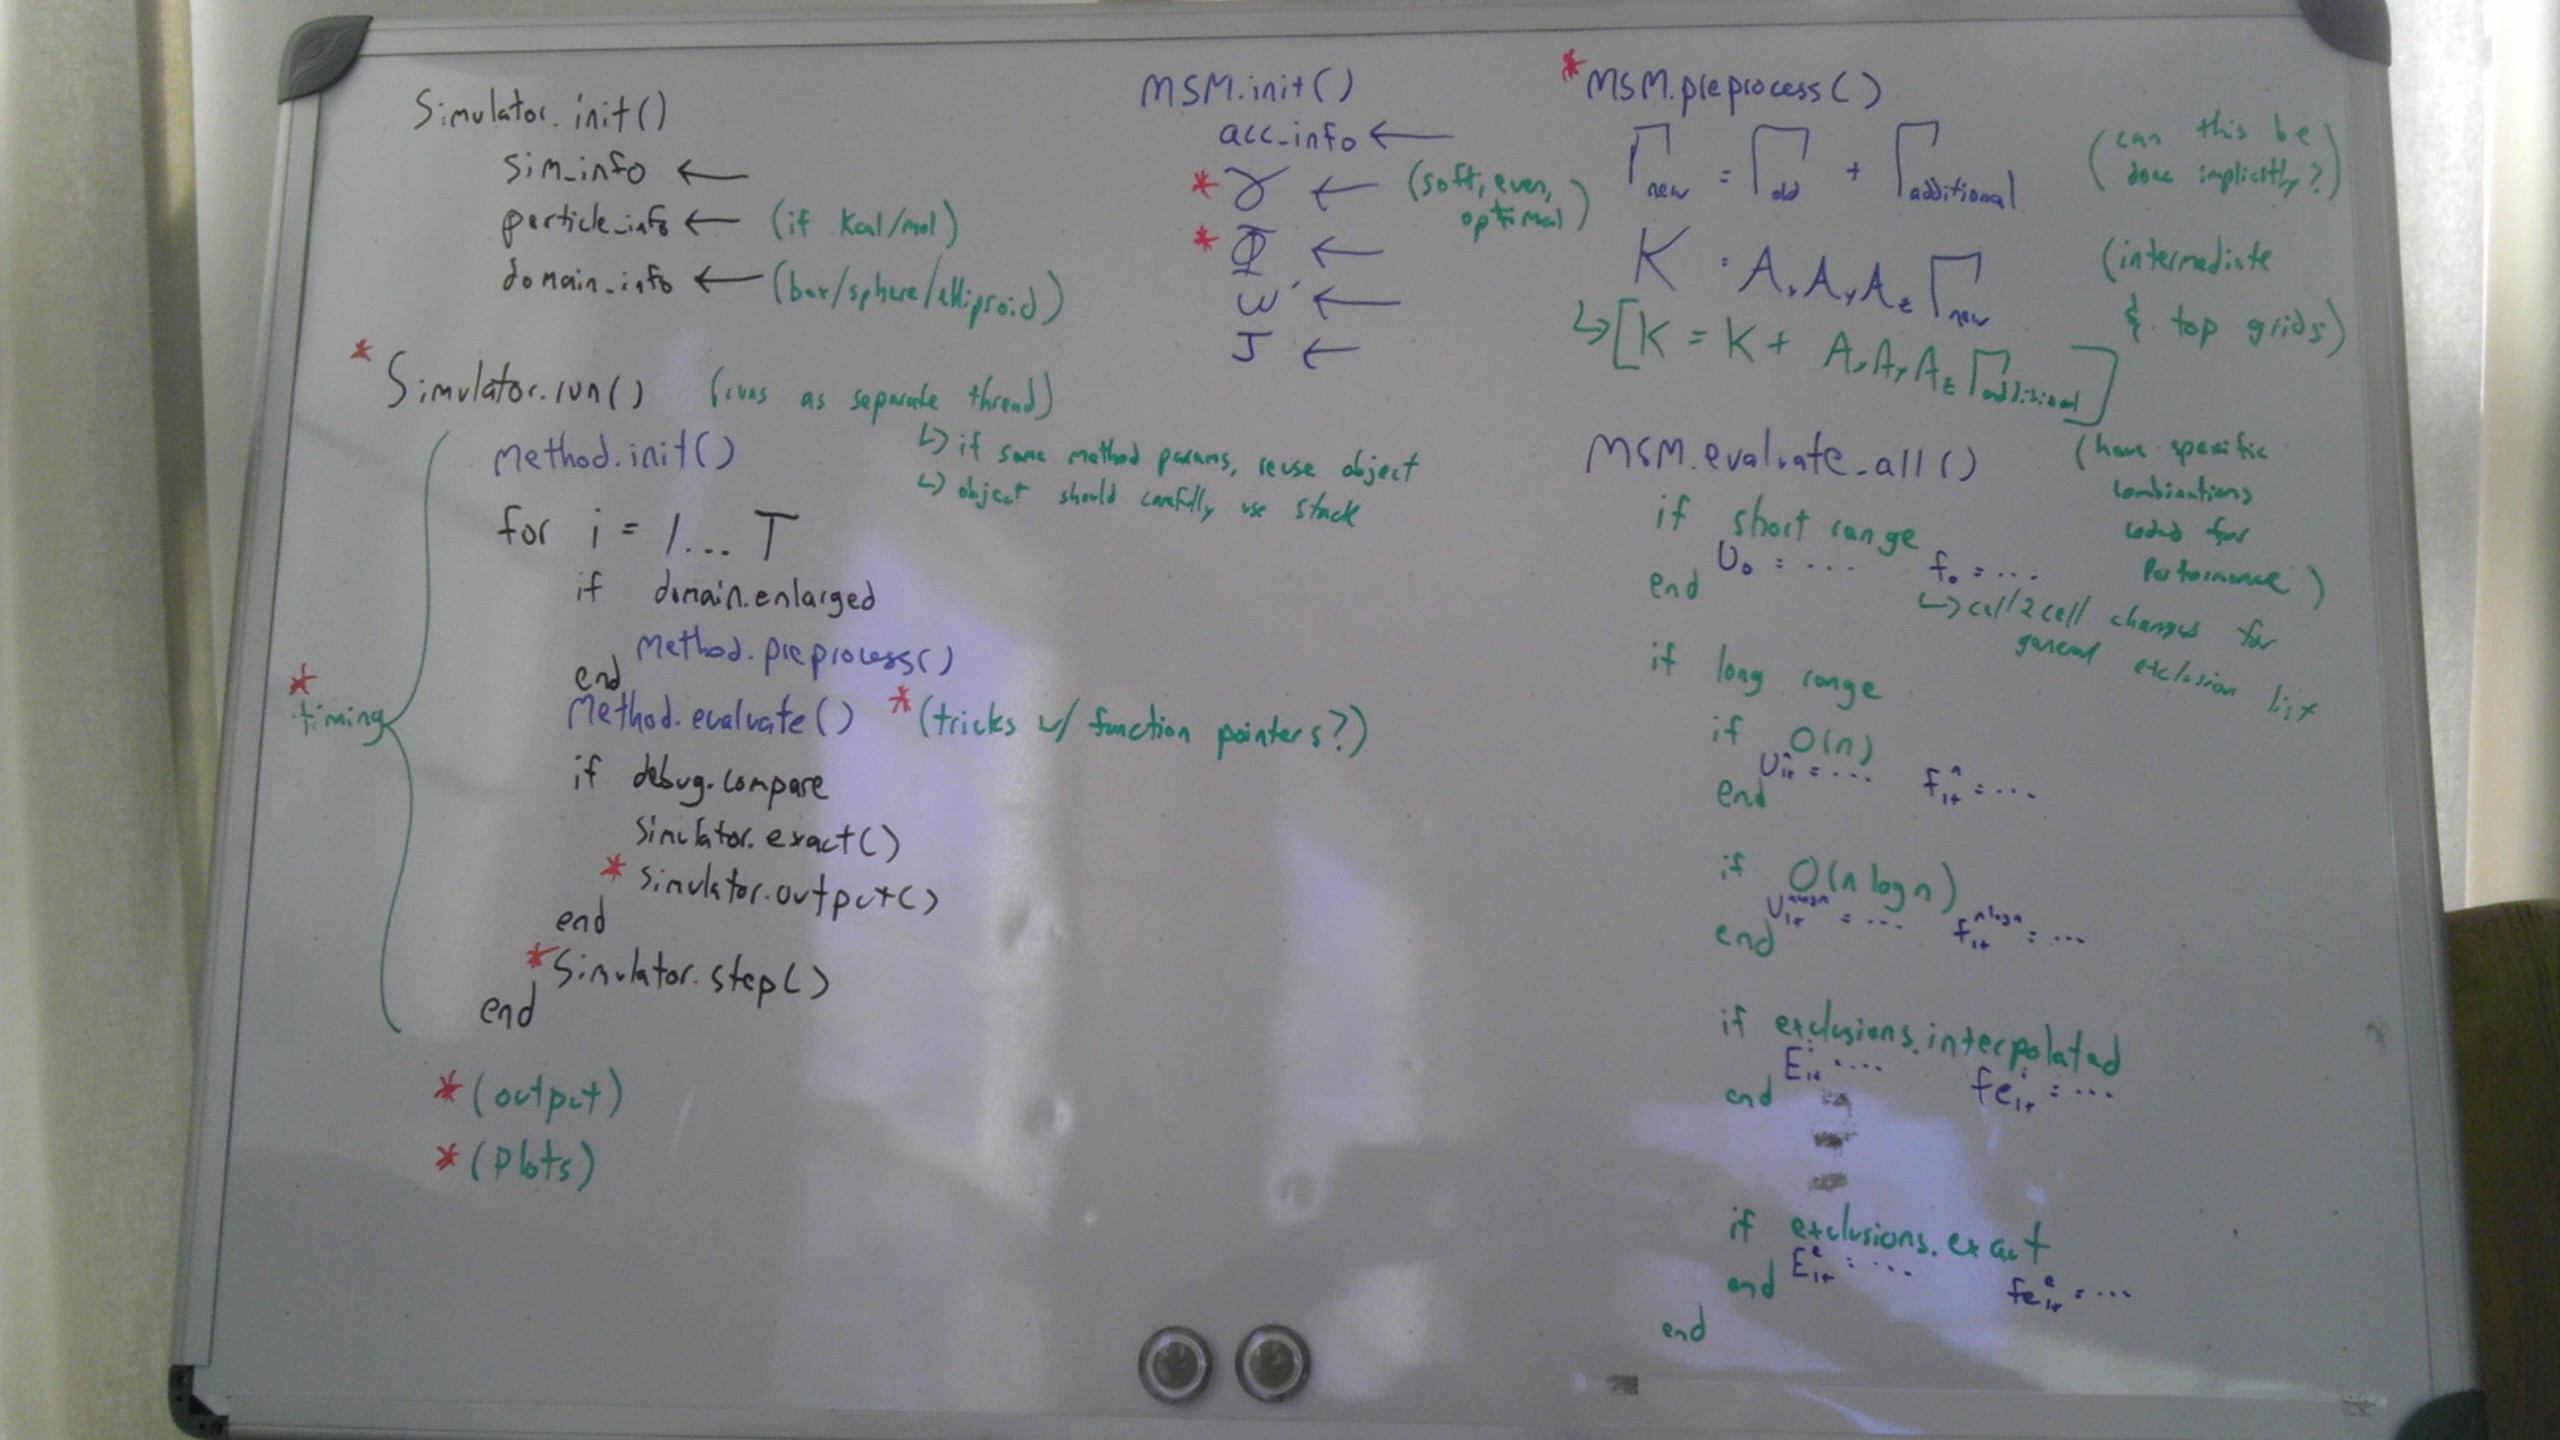 Simulator.init()
sim_info ←
particle_info ← (if kcal/mol)
domain_info ← (box/sphere/ellipsoid)
* Simulator.run() (runs as separate thread)
↳ if same method params, reuse object
↳ object should carefully use stack
* timing
method.init()
for i = 1... T
if domain.enlarged
method.preprocess()
end
method.evaluate() * (tricks w/ function pointers?)
if debug.compare
simulator.exact()
* simulator.output()
end
* Simulator.step()
end
* (output)
* (plots)
MSM.init()
acc_info ←
* γ ← (soft, even,
optimal)
* Φ ←
ω' ←
J ←
* MSM.preprocess()
Γnew = Γold + Γadditional
(can this be
done implicitly?)
K = AxAyAz Γnew
(intermediate
& top grids)
↳ [K = K + AxAyAz Γadditional]
MSM.evaluate_all()
(have specific
combinations
coded for
performance)
if short range
U₀ = ... f₀ = ...
end
↳ cell2cell changes for
general exclusion list
if long range
if O(n)
U₁₊ⁿ = ... f₁₊ⁿ = ...
end
if O(n log n)
U₁₊^nlogn = ... f₁₊^nlogn = ...
end
if exclusions.interpolated
E₁₊ⁱ = ... fe₁₊ⁱ = ...
end
if exclusions.exact
E₁₊ᵉ = ... fe₁₊ᵉ = ...
end
end